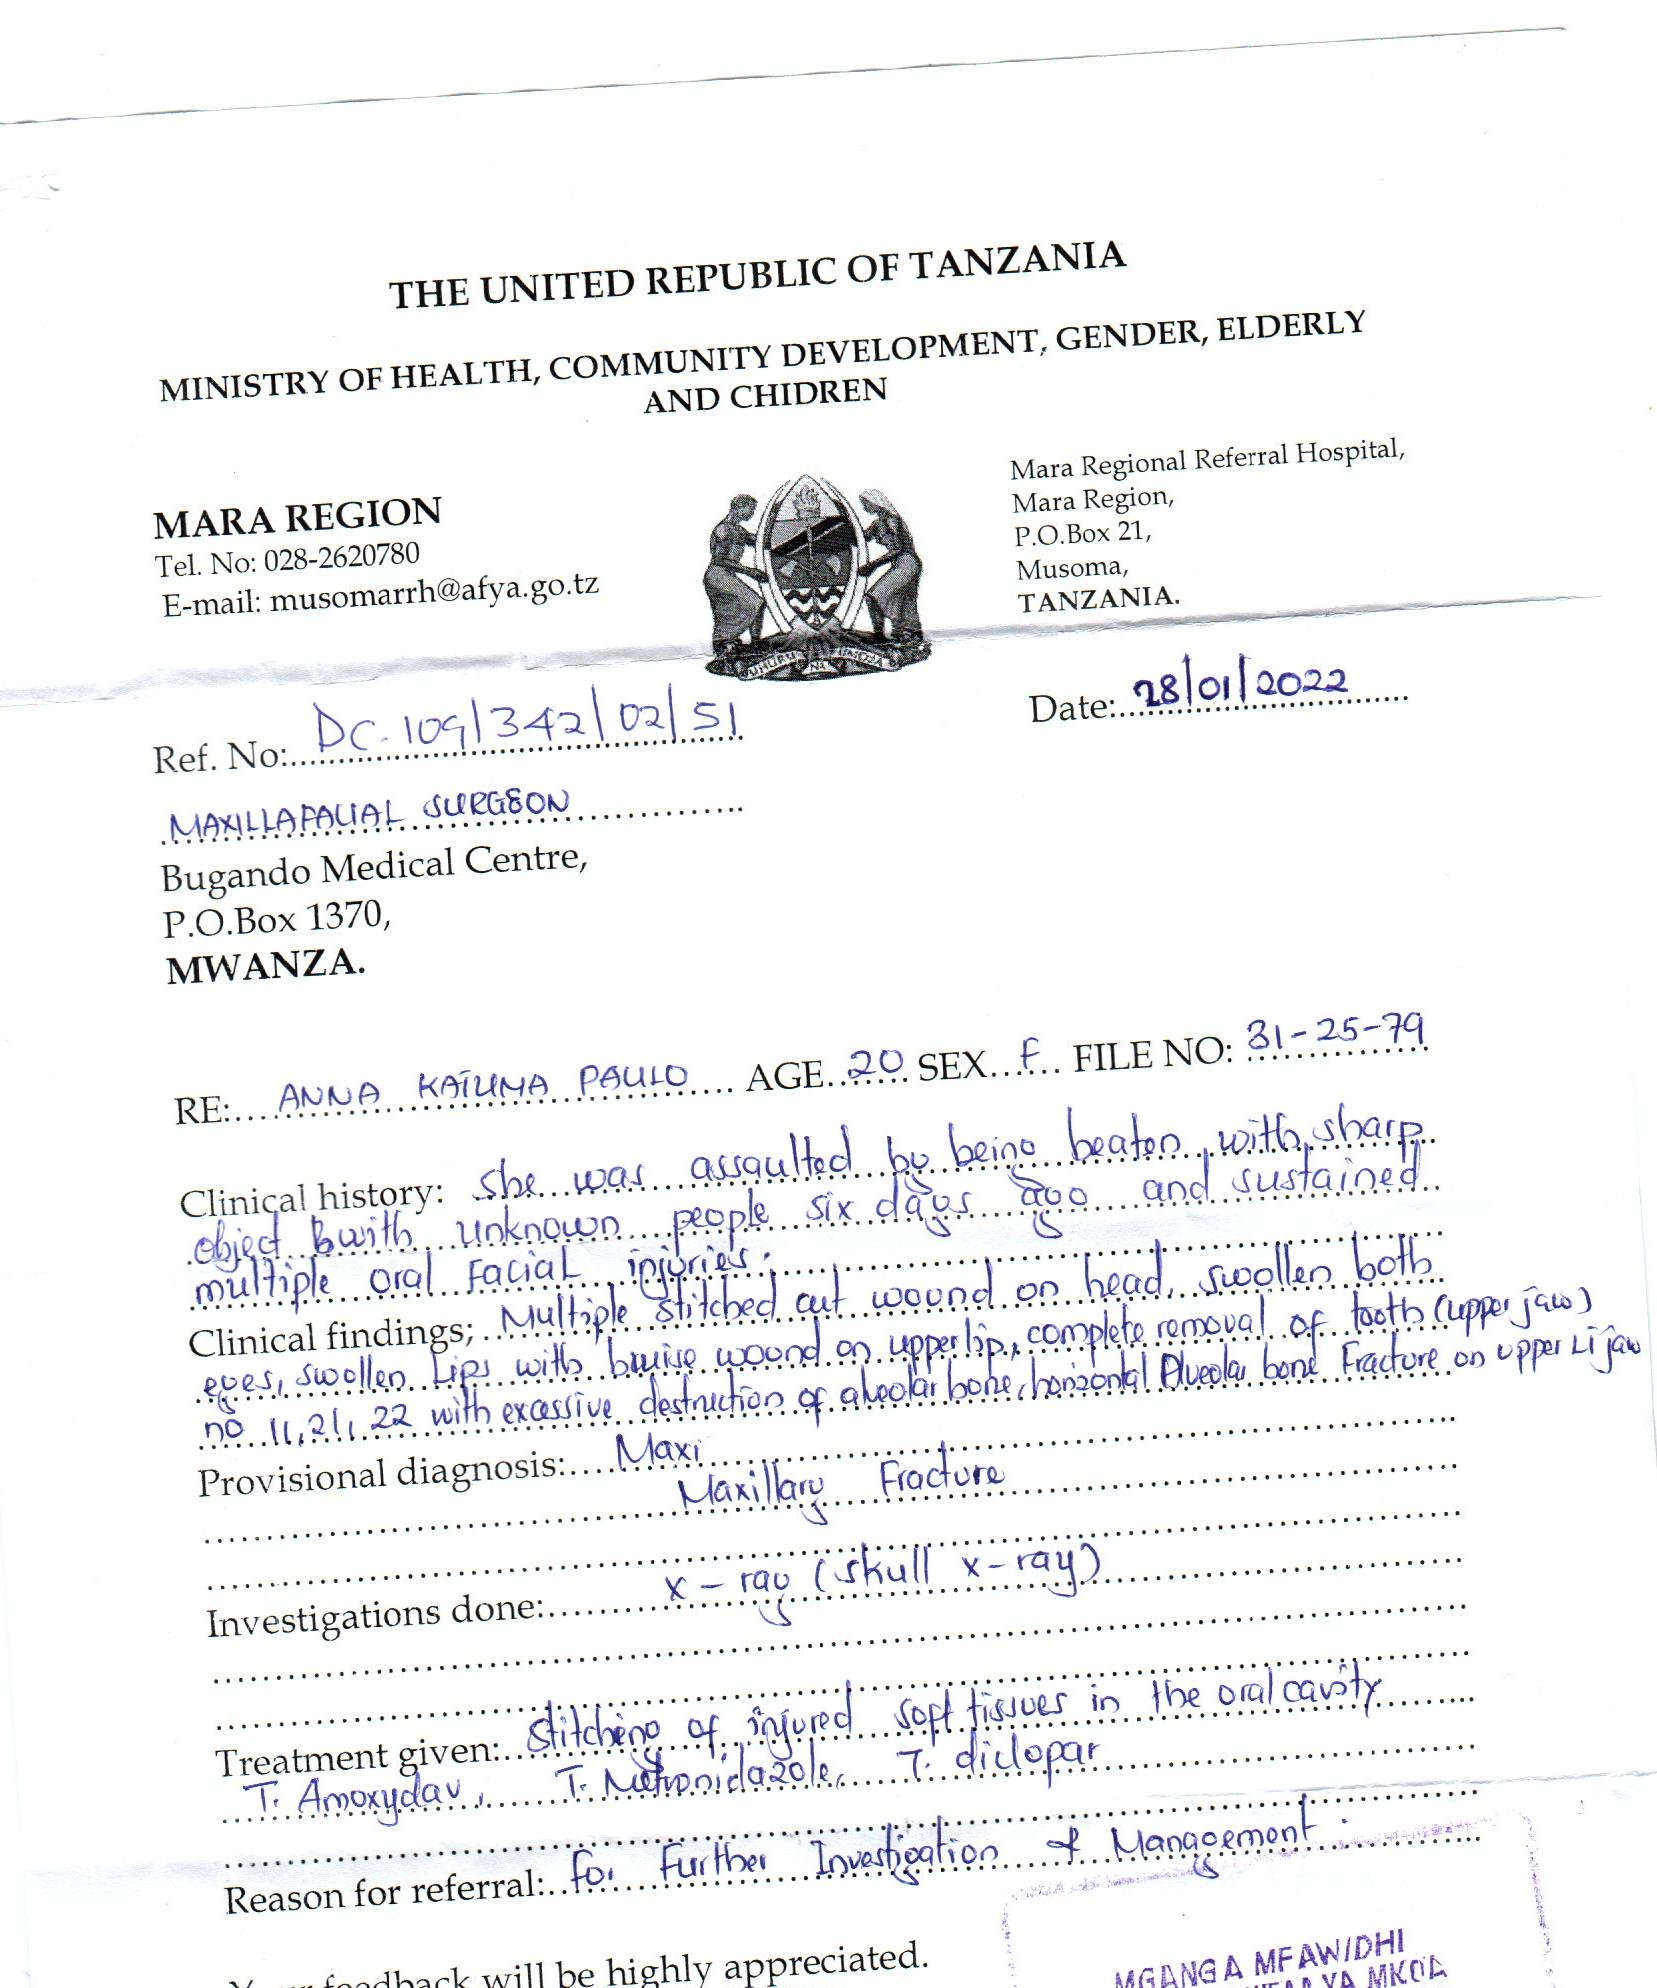 THE UNITED REPUBLIC OF TANZANIA
MINISTRY OF HEALTH, COMMUNITY DEVELOPMENT, GENDER, ELDERLY
AND CHIDREN
MARA REGION
Tel. No: 028-2620780
E-mail: musomarrh@afya.go.tz
Mara Regional Referral Hospital,
Mara Region,
P.O.Box 21,
Musoma,
TANZANIA.
UHURU NA UMOJA
Date: 28/01/2022
Ref. No: DC.109/342/02/51
MAXILLAFACIAL SURGEON
Bugando Medical Centre,
P.O.Box 1370,
MWANZA.
RE: ANNA KAIUMA PAULO AGE 20 SEX F FILE NO: 31-25-79
Clinical history: She was assaulted by being beaten with sharp
object with unknown people six days ago and sustained
multiple oral facial injuries.
Clinical findings; Multiple stitched cut wound on head, swollen both
eyes, swollen Lips with bruise wound on upper lip, complete removal of tooth (upper jaw)
no 11, 21, 22 with excessive destruction of alveolar bone, horizontal Alveolar bone Fracture on upper jaw
Provisional diagnosis: Maxi
Maxillary Fracture
Investigations done: x-ray (skull x-ray)
Treatment given: Stitching of injured soft tissues in the oral cavity
T. Amoxyclav, T. Metronidazole, T. diclopar
Reason for referral: for Further Investigation & Management.
feedback will be highly appreciated.
MGANGA MFAWIDHI
YA MKOA